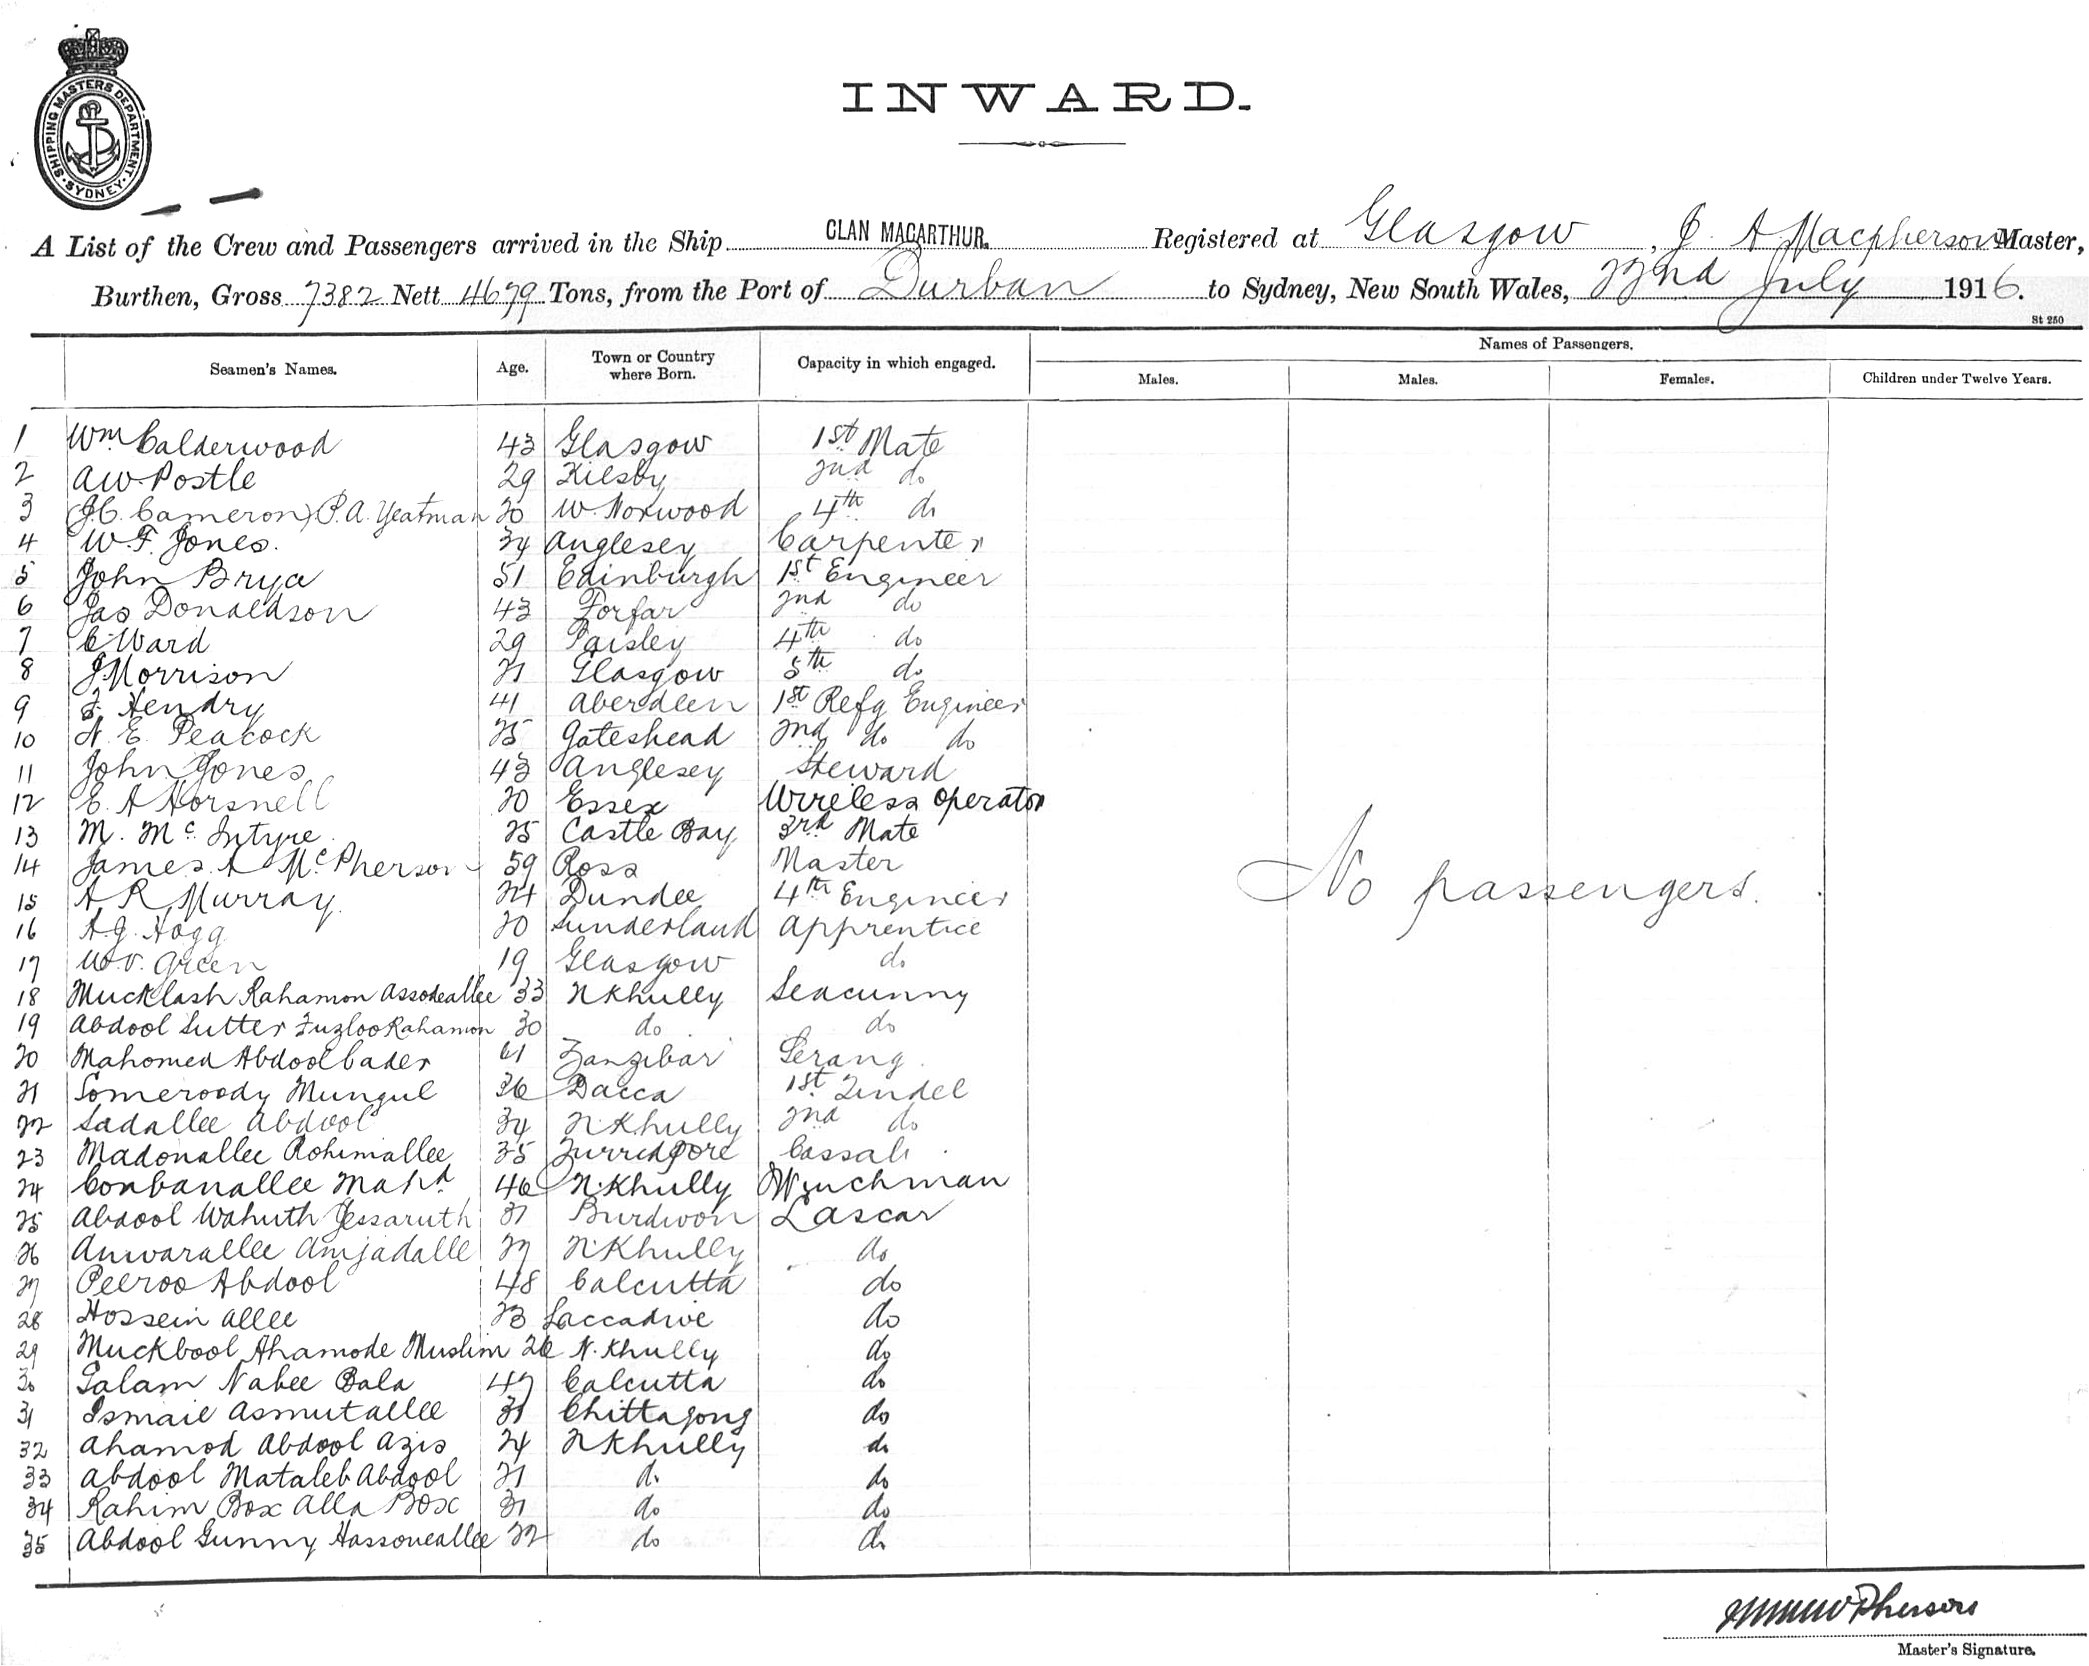 SHIPPING MASTERS DEPARTMENT. SYDNEY
INWARD.
A List of the Crew and Passengers arrived in the Ship CLAN MACARTHUR. Registered at Glasgow, J. A Macpherson Master,
Burthen, Gross 7382 Nett 4679 Tons, from the Port of Durban to Sydney, New South Wales, 22nd July 1916.
St 250
Seamen's Names. Age. Town or Country where Born. Capacity in which engaged. Names of Passengers.
Males. Males. Females. Children under Twelve Years.
1 Wm Calderwood 43 Glasgow 1st Mate
2 AW Postle 29 Kilsby 2nd do
3 (J.C. Cameron) P.A. Yeatman 20 W. Norwood 4th do
4 W.F. Jones. 34 Anglesey Carpenter
5 John Bryce 51 Edinburgh 1st Engineer
6 Jas Donaldson 43 Forfar 2nd do
7 C Ward 29 Paisley 4th do
8 J Morrison 21 Glasgow 5th do
9 J. Hendry 41 Aberdeen 1st Refg Engineer
10 N. E. Peacock 25 Gateshead 2nd do do
11 John Jones 43 Anglesey Steward
12 E. A Horsnell 20 Essex Wireless operator
13 M. Mc Intyre 25 Castle Bay 3rd Mate
14 James A McPherson 59 Ross Master
15 A R Murray 24 Dundee 4th Engineer
16 A.G. Hogg 20 Sunderland Apprentice
17 W.V. Green 19 Glasgow do
18 Mucklash Rahamon Assodeallee 33 N Khully Seacunny
19 Abdool Sutter Fuzloo Rahamon 30 do do
20 Mahomed Abdool Cader 61 Zanzibar Serang
21 Someroody Mungul 36 Dacca 1st Tindel
22 Sadallee Abdool 34 N. Khully 2nd do
23 Madonallee Rohimallee 35 Furredpore Cassab
24 Corbanallee Mahd 46 N. Khully Winchman
25 Abdool Wahuth Jessaruth 31 Burdwon Lascar
26 Anwarallee Amjadalle 27 N. Khully do
27 Peeroo Abdool 48 Calcutta do
28 Hossein Allee 23 Laccadive do
29 Muckbool Ahamode Muslim 26 N. Khully do
30 Golam Nabee Bala 47 Calcutta do
31 Ismail Asmutallee 31 Chittagong do
32 Ahamod Abdool Azis 24 N Khully do
33 Abdool Mataleb Abdool 21 do do
34 Rahim Box Alla Box 31 do do
35 Abdool Gunny Hassoneallee 22 do do
No passengers.
Master's Signature.